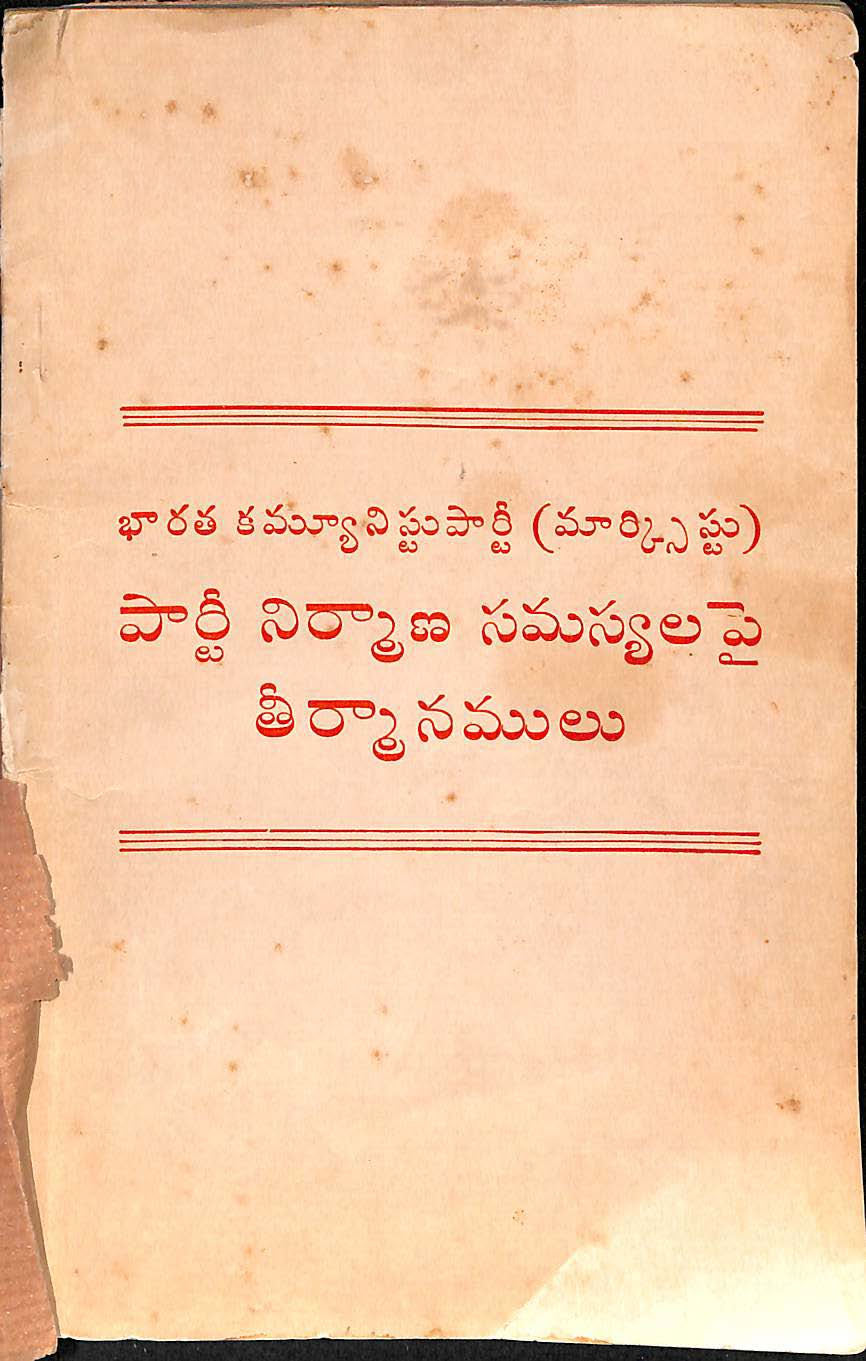 భారత కమ్యూనిస్టుపార్టీ (మార్క్సిస్టు)
పార్టీ నిర్మాణ సమస్యలపై
తీర్మానములు